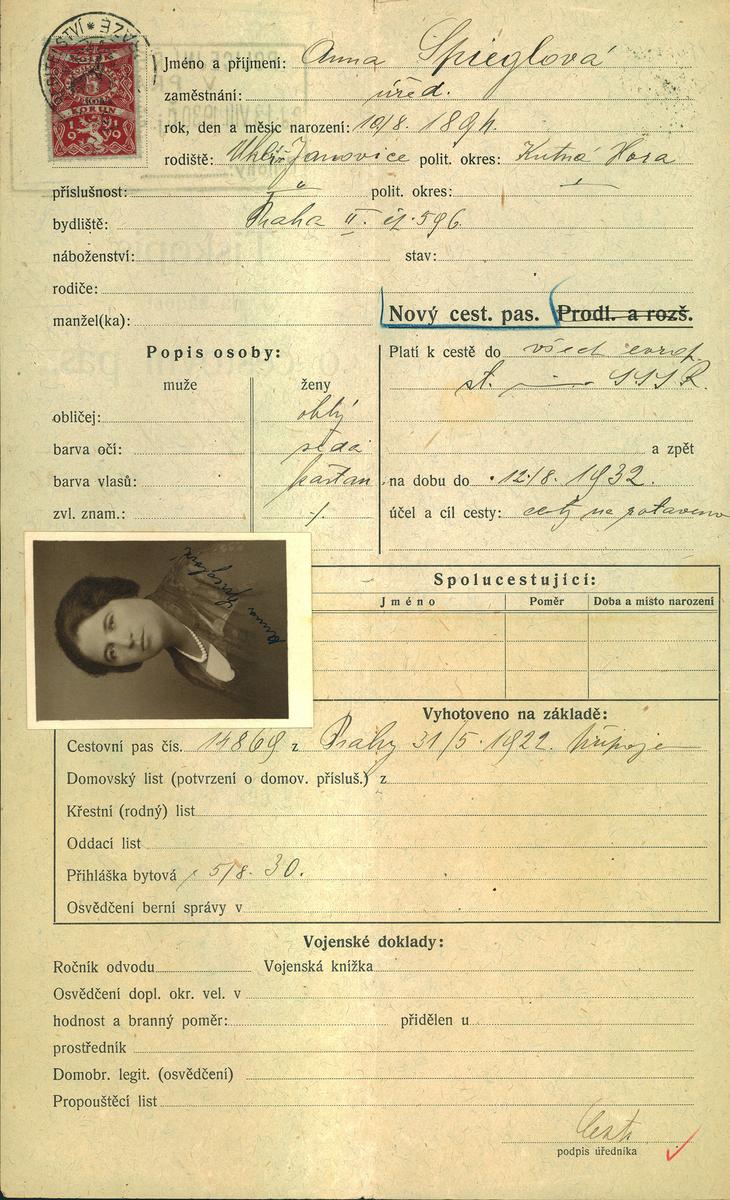 Jméno a příjmení: Anna Spieglová
zaměstnání: úřed.
rok, den a měsíc narození: 10/8. 1894.
rodiště: Uhlíř. Janovice polit. okres: Kutná Hora
příslušnost: " polit. okres:
bydliště: Praha II. čp. 596.
náboženství: stav:
rodiče:
manžel(ka):
Nový cest. pas. Prodl. a rozš.
Popis osoby:
muže ženy
obličej: oblý
barva očí: šedá
barva vlasů: kaštan.
zvl. znam.: ./.
Platí k cestě do všech evrop.
st. SSSR.
a zpět
na dobu do 12./8. 1932.
účel a cíl cesty: cesty na zotavenou
Anna Spieglová
Spolucestující:
Jméno Poměr Doba a místo narození
Vyhotoveno na základě:
Cestovní pas čís. 14869 z Prahy 31/5. 1922. připoje
Domovský list (potvrzení o domov. přísluš.) z
Křestní (rodný) list
Oddací list
Přihláška bytová 5/8. 30.
Osvědčení berní správy v
Vojenské doklady:
Ročník odvodu Vojenská knížka
Osvědčení dopl. okr. vel. v
hodnost a branný poměr: přidělen u
prostředník
Domobr. legit. (osvědčení)
Propouštěcí list
podpis úředníka